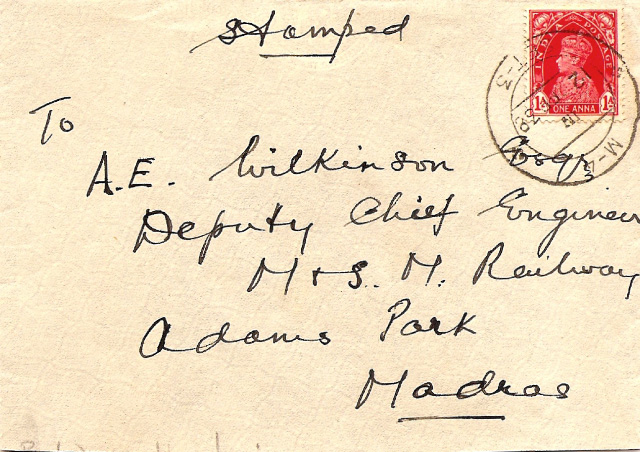 Stamped
INDIA POSTAGE
1A ONE ANNA 1A
To
A.E. Wilkinson Esqr
Deputy Chief Engineer
M & S. M. Railway
Adams Park
Madras